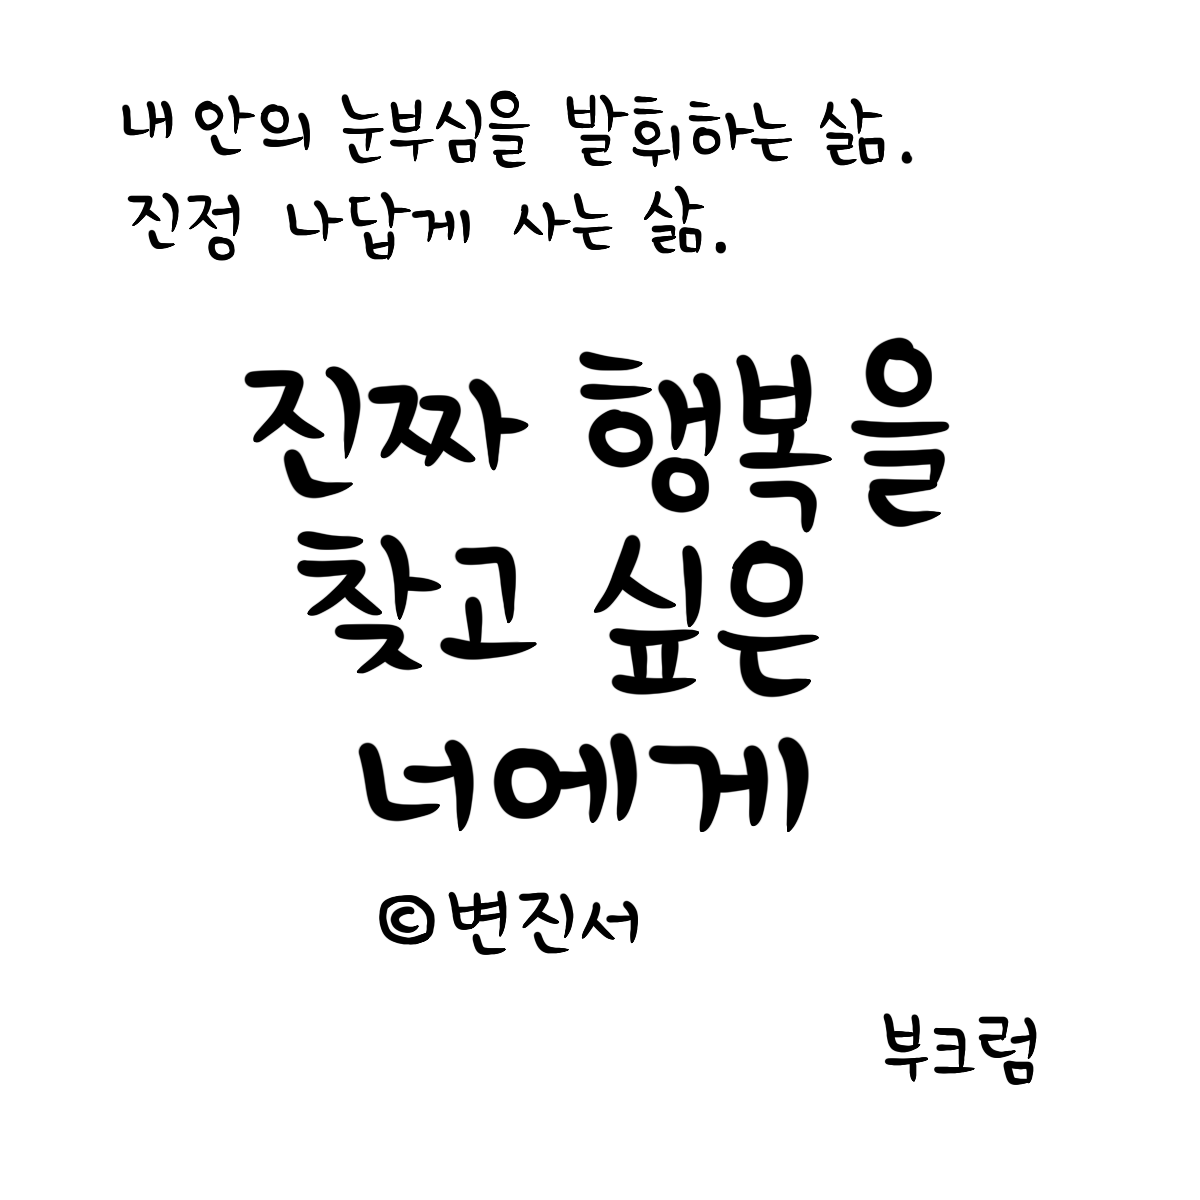 내 안의 눈부심을 발휘하는 삶.
진정 나답게 사는 삶.
진짜 행복을
찾고 싶은
너에게
©변진서
부크럼